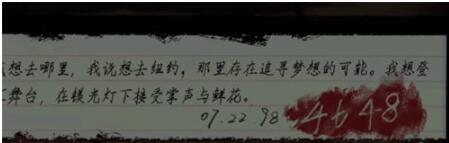 想去哪里，我说想去纽约，那里存在追寻梦想的可能。我想登
舞台，在镁光灯下接受掌声与鲜花。
07.22.98
4648